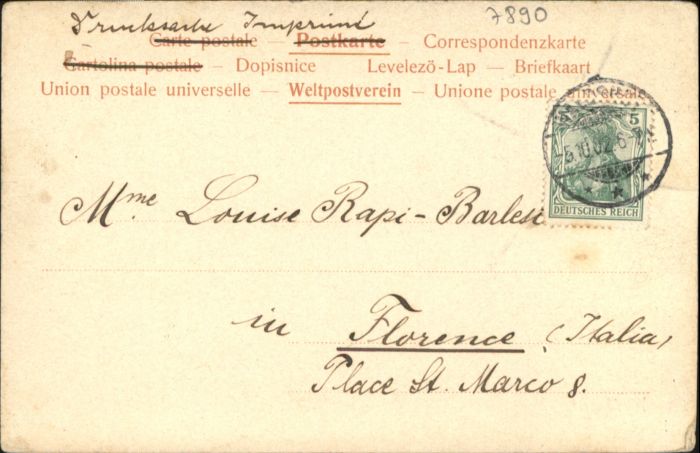 7890
Drucksache Imprimé
Carte postale – Postkarte – Correspondenzkarte
Cartolina postale – Dopisnice Levelezö-Lap – Briefkaart
Union postale universelle – Weltpostverein – Unione postale universale
5 5
5.10.02.6-7
DEUTSCHES REICH
Mme Louise Rapi-Barlesi
in Florence (Italia)
Place St. Marco 8.